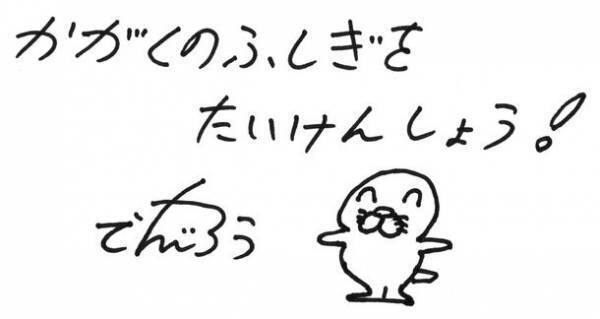 かがくのふしぎを
たいけんしよう!
でんじろう